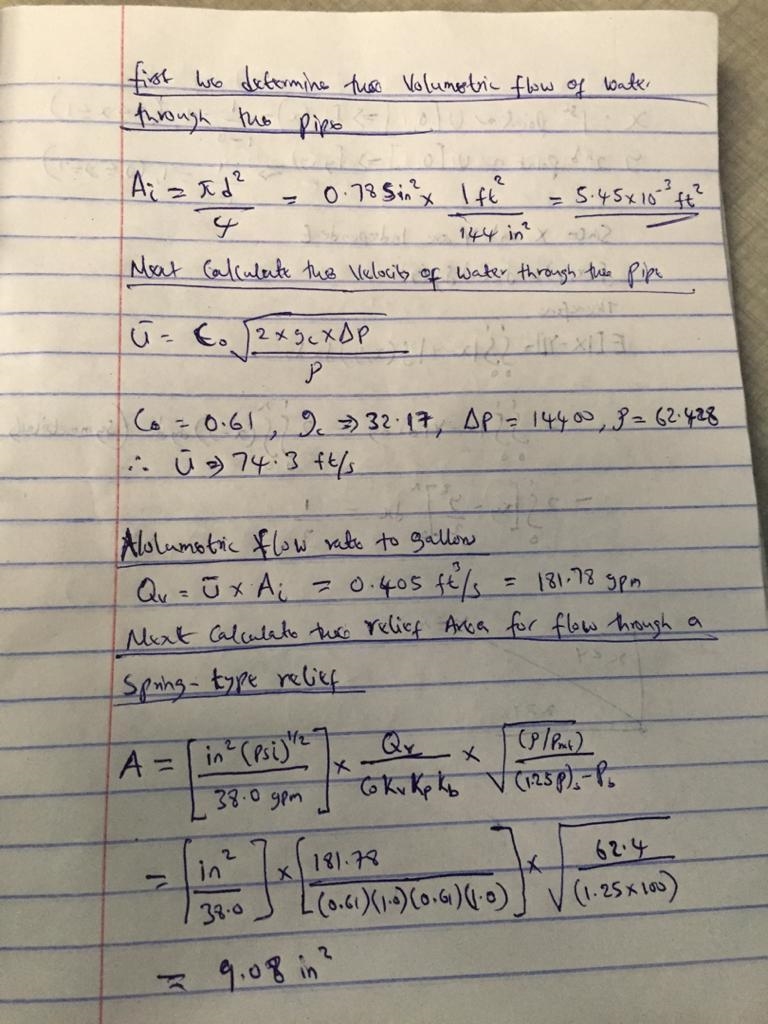 first we determine the Volumetric flow of water
through the pipe
Ai = πd²/4 = 0.785in² x 1 ft²/144 in² = 5.45x10⁻³ ft²
Next Calculate the Velocity of water through the pipe
ū = Co √(2 x gc x ΔP/ρ)
Co = 0.61, gc ⇒ 32.17, ΔP = 14400, ρ = 62.428
∴ ū ⇒ 74.3 ft/s
Volumetric flow rate to gallon
Qv = ū x Ai = 0.405 ft³/s = 181.78 gpm
Next Calculate the relief Area for flow through a
Spring-type relief
A = [in² (psi)^1/2 / 38.0 gpm] x Qv/(Co Kv Kp Kb) x √((ρ/ρref)/((1.25P)s - Pb))
= [in²/38.0] x [181.78/((0.61)(1.0)(0.61)(1.0))] x √(62.4/(1.25x100))
= 9.08 in²